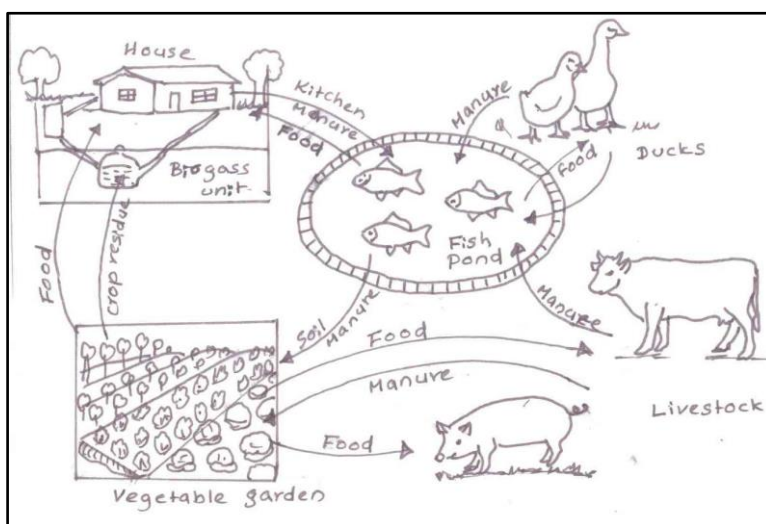 House
Kitchen
Manure
Food
Manure
Food
Ducks
Biogass
unit
Fish
Pond
Food
Crop residue
Soil
Manure
Manure
Food
Manure
Livestock
Food
Vegetable garden